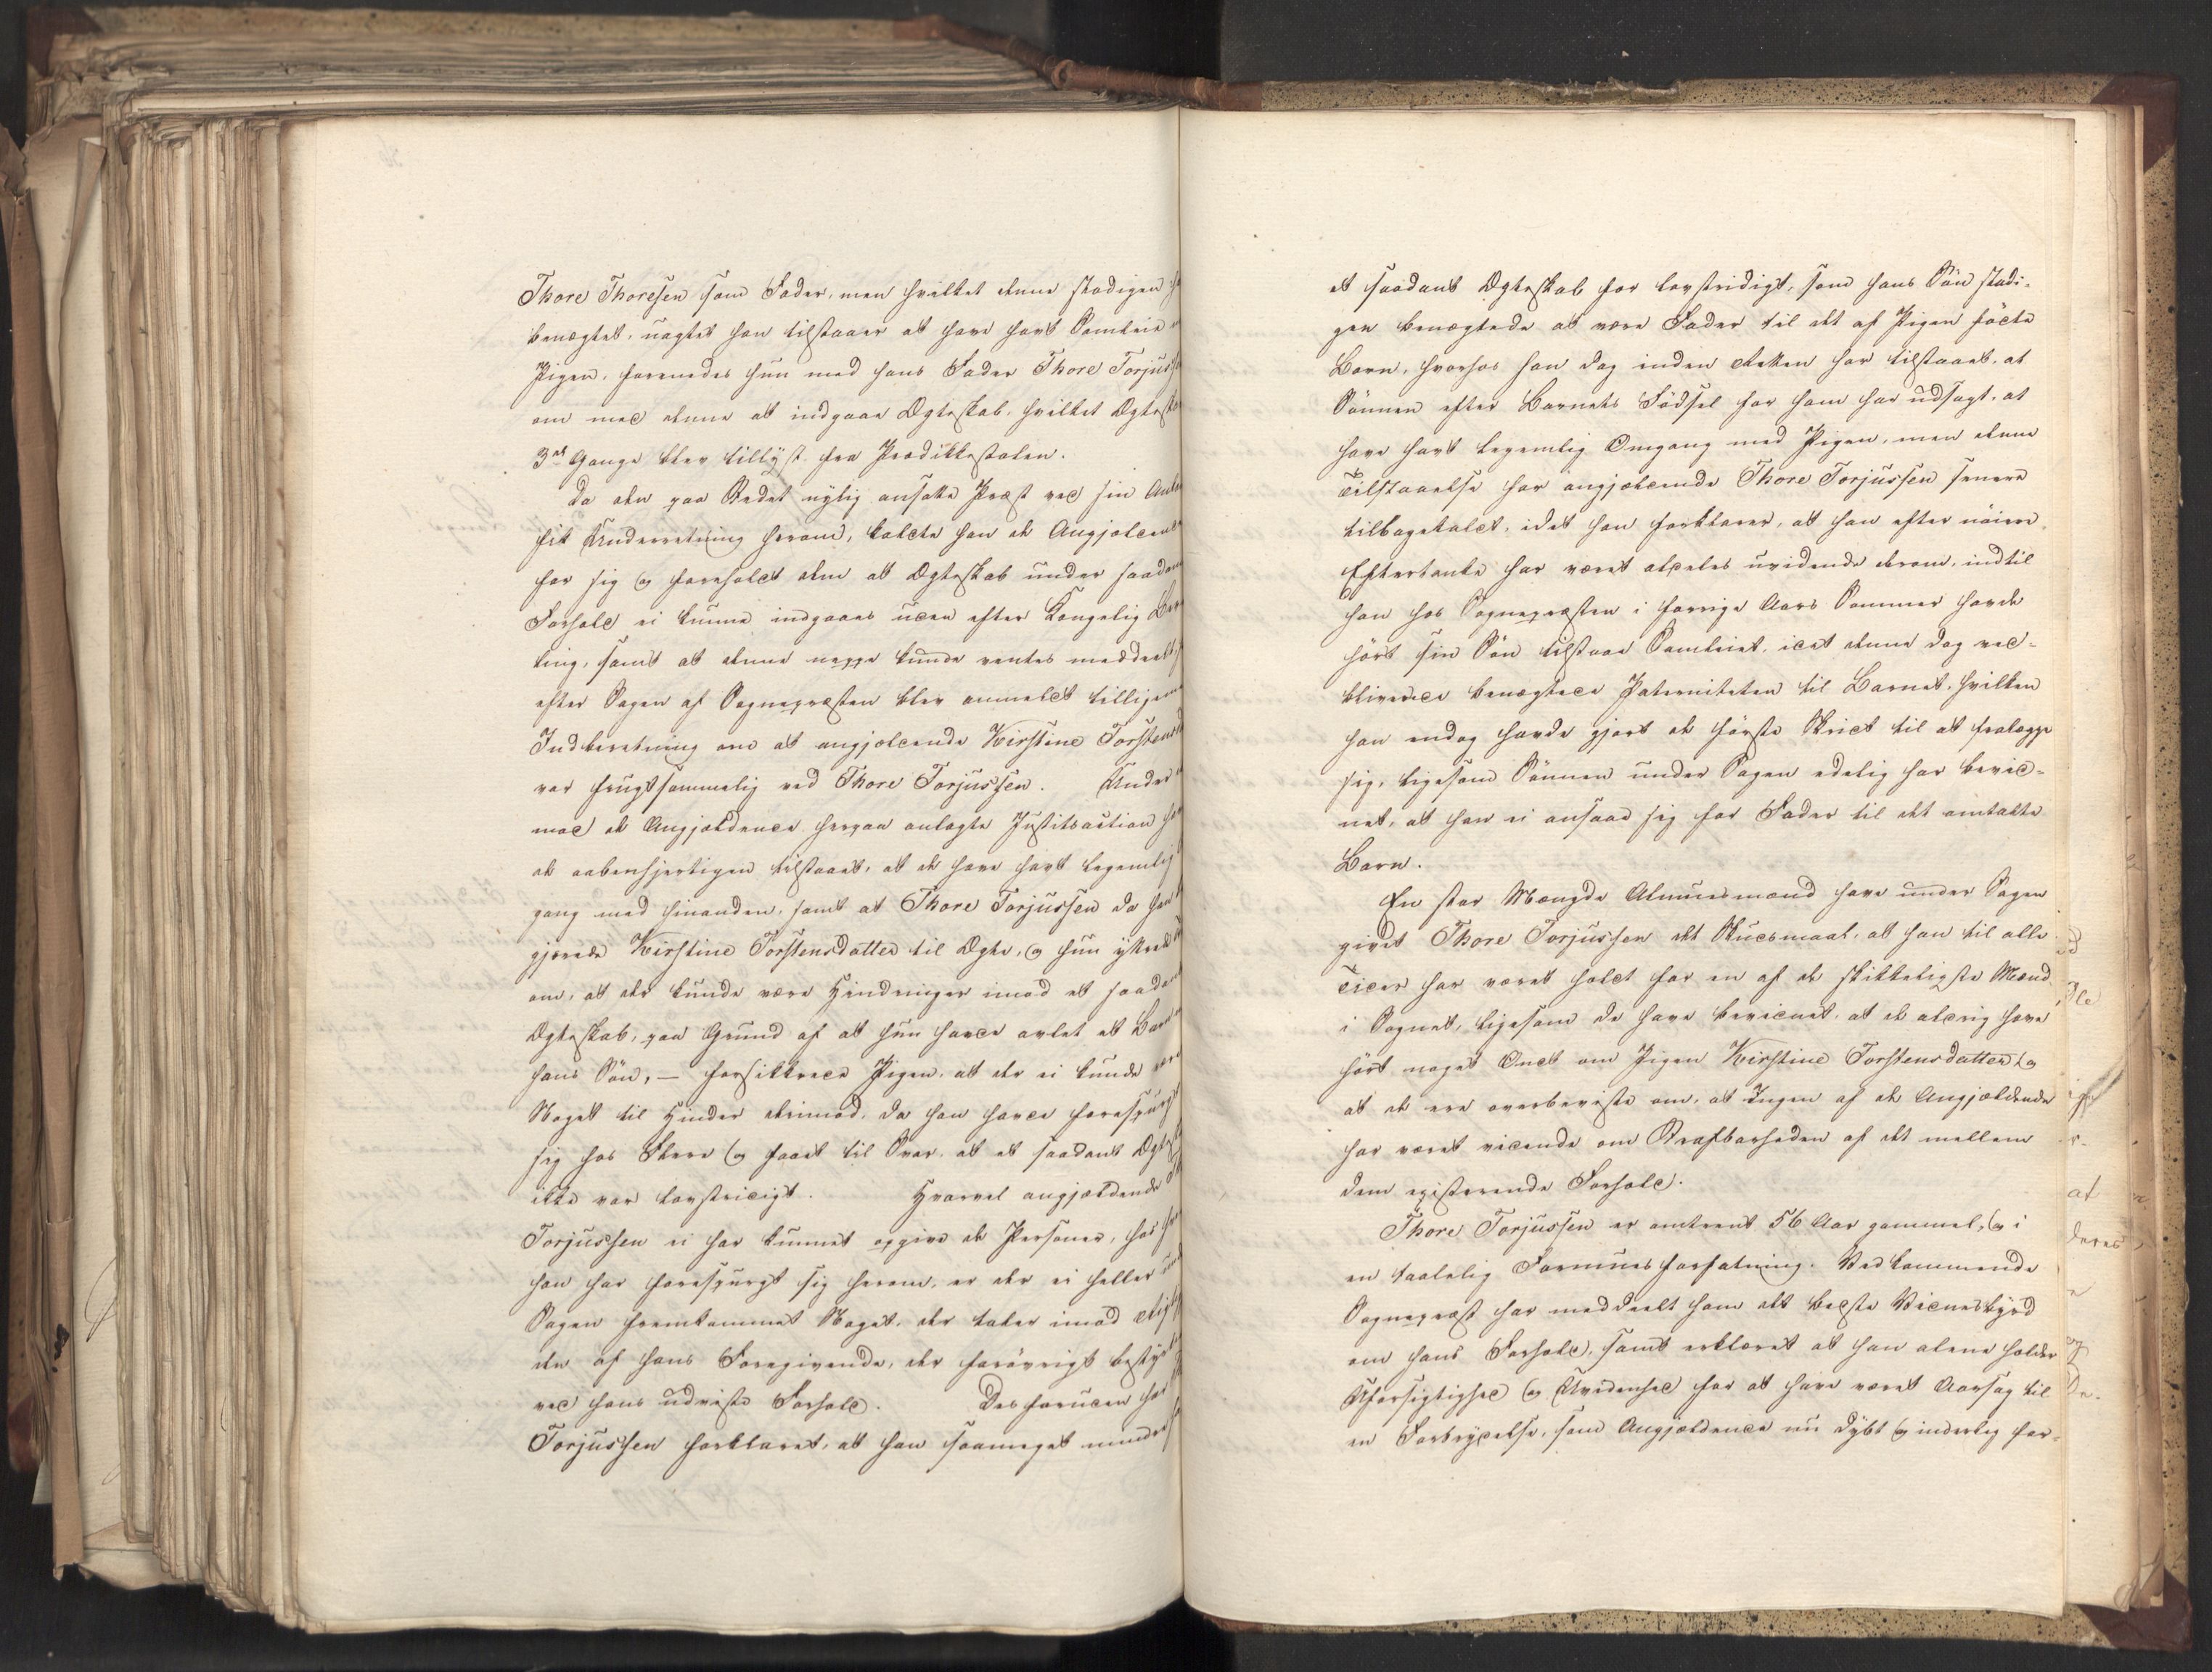 Thore Thoresen som Fader, men hvilket denne stadigen
benægtet, uagtet han tilstaaer at have havt Samleie
Pigen, forenedes hun med hans Fader Thore Torjus
om med denne at indgaae Ægteskab, hvilket Ægtesk
3de Gange blev tillyst fra Prædikestolen.
Da den paa Stedet nylig ansatte Præst ved sin
fik Underretning herom, kaldte han de Angjeldende
for sig og foreholdt dem at Ægteskab under saadan
Forhold ei kunne indgaaes uden efter Kongelig
ling, samt at denne neppe kunde ventes meddeelt
efter Sagen af Sognepræsten blev anmeldt tilligemed
Indberetning om at angjeldende Kirstine Torstensd
var frugtsommelig ved Thore Torjussen. Under
mod de Angjeldende herpaa anlagte Justitsaction
de aabenhjertigen tilstaaet, at de have havt legemlig
gang med hinanden, samt at Thore Torjussen da han
gjerede Kirstine Torstensdatter til Ægte, og hun yttrede
om, at der kunde være Hindringer imod et saadan
Ægteskab, paa Grund af at hun havde avlet et Barn
hans Søn, – forsikkrede Pigen, at der ei kunde være
Noget til Hinder derimod, da han havde forespurgt
sig hos Flere og faaet til Svar, at et saadant Ægt
ikke var lovstridigt. Hvorvel angjeldende
Torjussen ei har kunnet opgive de Personer, hos
han har forespurgt sig herom, er der ei heller
Sagen fremkommet Noget, der taler imod
den af hans Foregivende, der forøvrigt bestyrkes
ved hans udviste Forhold. Desforuden har
Torjussen forklaret, at han saameget mindre
et saadant Ægteskab for lovstridigt, som hans Søn stadi-
gen benægtede at være Fader til det af Pigen fødte
Barn, hvorhos han dog inden Retten har tilstaaet, at
Sønnen efter Barnets Fødsel for ham har udsagt, at
have havt legemlig Omgang med Pigen, men denne
Tilstaaelse har angjeldende Thore Torjussen senere
tilbagekaldt, idet han forklarer, at han efter nøiere
Eftertanke har været aldeles uvidende derom, indtil
han hos Sognepræsten i forrige Aars Sommer havde
hørt sin Søn tilstaae Samleiet, idet denne dog ved-
blivende benægtede Paterniteten til Barnet, hvilken
han endog havde gjort de første Skridt til at fralægge
sig, ligesom Sønnen under Sagen edelig har bevid-
net, at han ei ansaae sig for Fader til det omtalte
Barn.
En stor Mængde Almuesmænd have under Sagen
givet Thore Torjussen det Skudsmaal, at han til alle
Tider har været holdt for en af de skikkeligste Mænd
i Sognet, ligesom de have bevidnet, at de aldrig have
hørt noget Ondt om Pigen Kirstine Torstensdatter, og
at de ere overbeviste om, at Ingen af de Angjældende
har været vidende om Strafbarheden af det mellem
dem existerende Forhold.
Thore Torjussen er omtrent 56 Aar gammel, og i
en taalelig Formuesforfatning. Vedkommende
Sognepræst har meddeelt ham det bedste Vidnesbyrd
om hans Forhold, samt erklæret at han alene holder
Uforsigtighed og Uvidenhed for at have været Aarsag til
en Forbrydelse, som Angjeldende nu dybt og inderlig for-